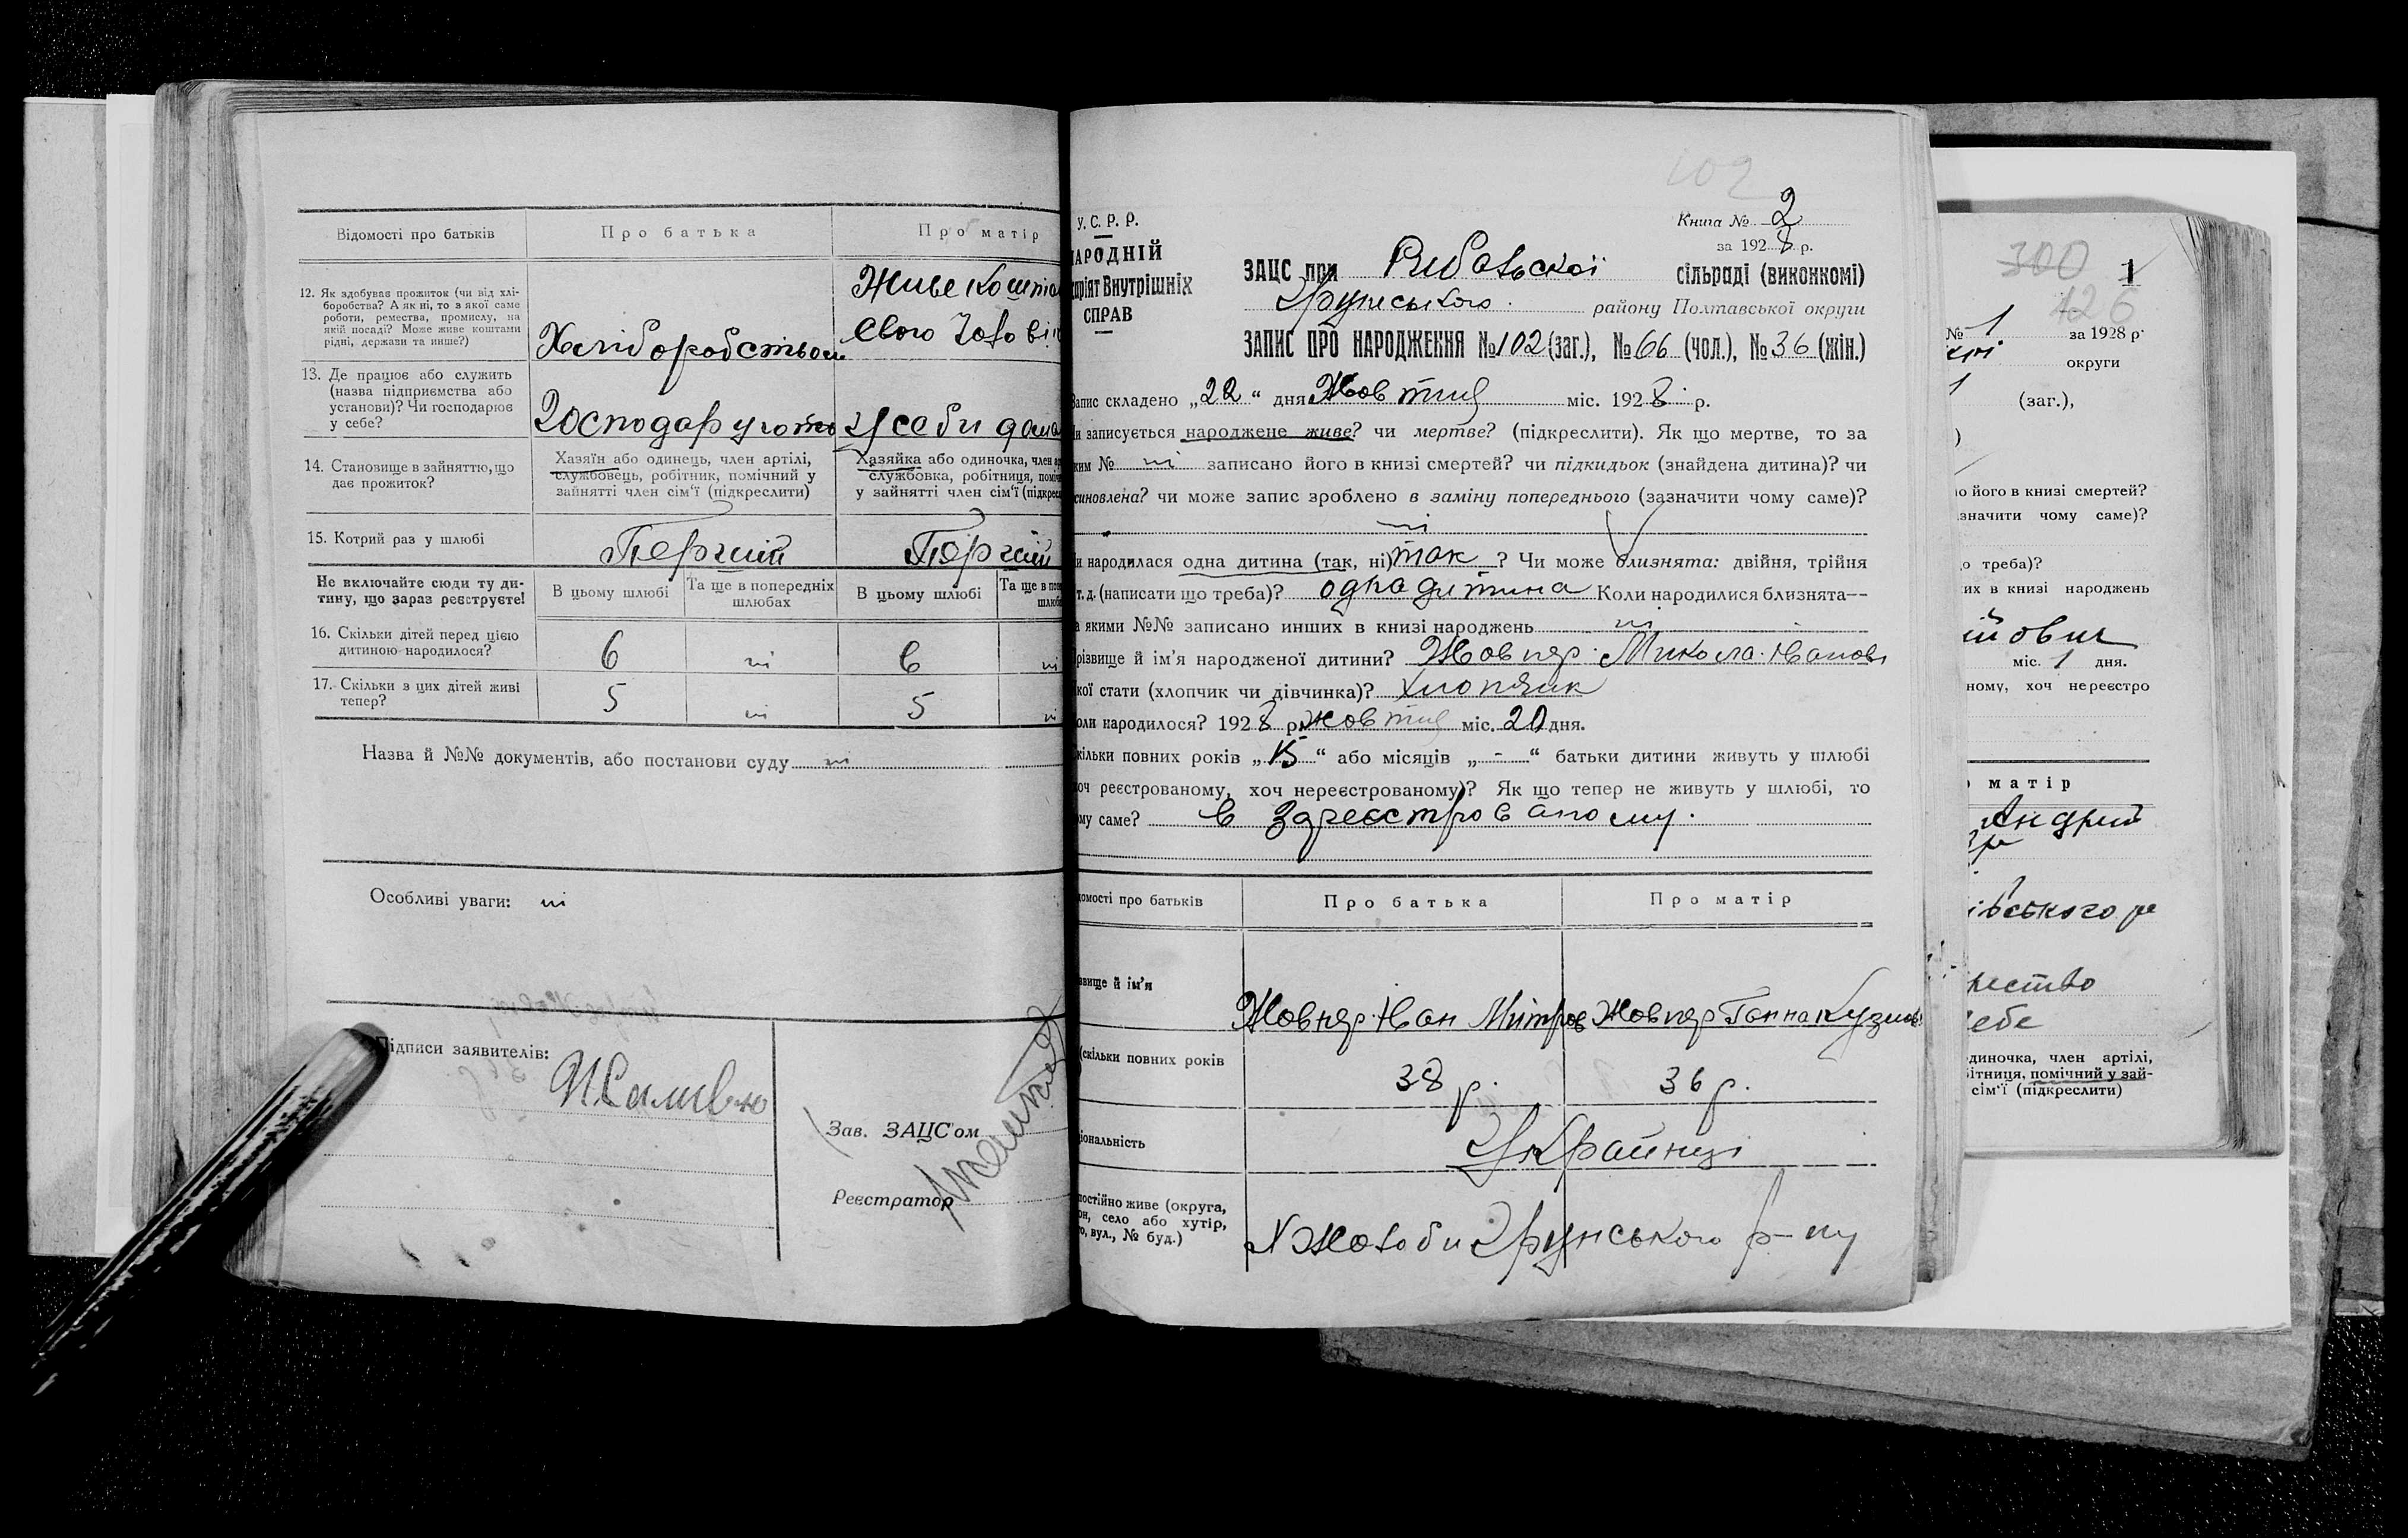 Відомості про батьків
Про батька
Про матір
12. Як здобуває прожиток (чи від хлі-
боробства? А як ні, то з якої саме
роботи, ремества, промислу, на
якій посаді? Може живе коштами
рідні, держави та инше?)
Хлібороб­ством
Живе коштом
свого чоловіка
13. Де працює або служить
(назва підприємства або
установи)? Чи господарює
у себе?
Господарує
у себи дома
14. Становище в зайняттю, що
дає прожиток?
Хазяїн або одинець, член артілі,
службовець, робітник, помічний у
зайнятті член сім'ї (підкреслити)
Хазяйка або одиночка, член
службовка, робітниця,
у зайнятті член сім'ї
15. Котрий раз у шлюбі
Перший
Перший
Не включайте сюди ту ди-
тину, що зараз реєструєте!
В цьому шлюбі
Та ще в попередніх
шлюбах
В цьому шлюбі
Та ще в
16. Скільки дітей перед цією
дитиною народилося?
6
ні
6
ні
17. Скільки з цих дітей живі
тепер?
5
ні
5
ні
Назва й №№ документів, або постанови суду ні
Особливі уваги: ні
Підписи заявителів:
Зав. ЗАЦС'ом
Реєстратор
102
У. С. Р. Р.
НАРОДНІЙ
Внутрішніх
СПРАВ
Книга № 2
за 1928 р.
ЗАЦС при Рибальскої сільраді (виконкомі)
Грунського району Полтавської округи
ЗАПИС ПРО НАРОДЖЕННЯ № 102 (заг.), № 66 (чол.), № 36 (жін.)
Запис складено „22" дня Жовтня міс. 1928 р.
записується народжене живе? чи мертве? (підкреслити). Як що мертве, то за
№ ні записано його в книзі смертей? чи підкидьок (знайдена дитина)? чи
чи може запис зроблено в заміну попереднього (зазначити чому саме)?
ні
народилася одна дитина (так, ні) так ? Чи може близнята: двійня, трійня
т. д. (написати що треба)? одна дитина Коли народилися близнята—
якими №№ записано инших в книзі народжень ні
Прізвище й ім'я народженої дитини? Жовнер Микола Іванов
стати (хлопчик чи дівчинка)? хлопчик
народилося? 1928 р. жовтня міс. 20 дня.
повних років „15" або місяців „-" батьки дитини живуть у шлюбі
реєстрованому, хоч нереєстрованому)? Як що тепер не живуть у шлюбі, то
саме? в здреєстрованому.
про батьків
Про батька
Про матір
й ім'я
Жовнер Іван Митров
Жовнер Ганна Кузмов
(скільки повних років
38 р.
36 р.
Українці
постійно живе (округа,
село або хутір,
вул., № буд.)
Грунського р-ну
300
126
1
№ 1 за 1928 р.
округи
(заг.),
його в книзі смертей?
чому саме)?
треба)?
в книзі народжень
міс. 1 дня.
ному, хоч нереєстро
матір
Андрий
член артілі,
помічний у зай-
сім'ї (підкреслити)